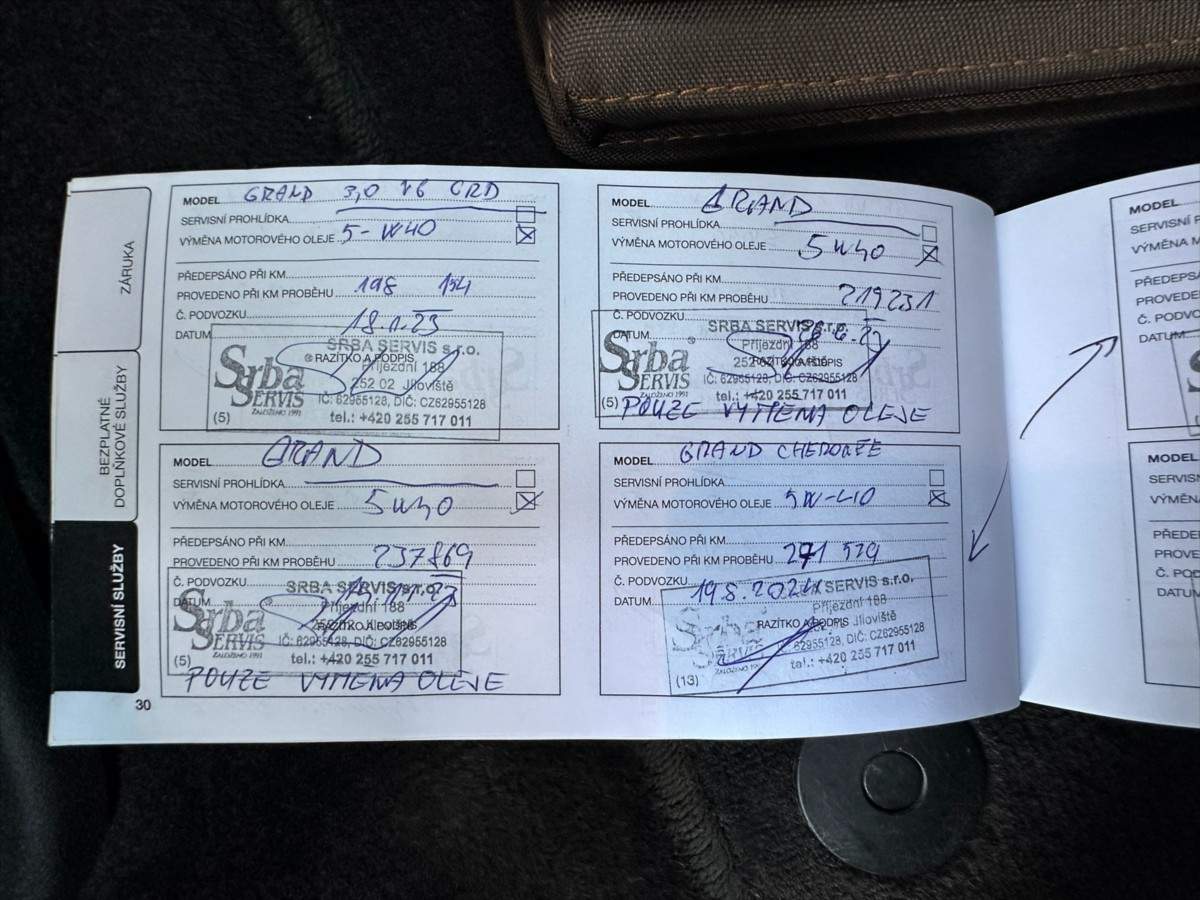 ZÁRUKA
BEZPLATNÉ
DOPLŇKOVÉ SLUŽBY
SERVISNÍ SLUŽBY
MODEL GRAND 3,0 V6 CRD
SERVISNÍ PROHLÍDKA
VÝMĚNA MOTOROVÉHO OLEJE 5-W40
PŘEDEPSÁNO PŘI KM
PROVEDENO PŘI KM PROBĚHU 198 154
Č. PODVOZKU
DATUM 18.1.23
SRBA SERVIS s.r.o.
RAZÍTKO A PODPIS
Příjezdní 188
252 02 Jíloviště
IČ: 62955128, DIČ: CZ62955128
tel.: +420 255 717 011
Srba
SERVIS
ZALOŽENO 1991
(5)
MODEL GRAND
SERVISNÍ PROHLÍDKA
VÝMĚNA MOTOROVÉHO OLEJE 5W40
PŘEDEPSÁNO PŘI KM
PROVEDENO PŘI KM PROBĚHU 219231
Č. PODVOZKU
DATUM
SRBA SERVIS s.r.o.
Příjezdní 188
RAZÍTKO A PODPIS
IČ: 62955128, DIČ: CZ62955128
tel.: +420 255 717 011
Srba
SERVIS
ZALOŽENO 1991
(5) POUZE VÝMĚNA OLEJE
MODEL GRAND
SERVISNÍ PROHLÍDKA
VÝMĚNA MOTOROVÉHO OLEJE 5W40
PŘEDEPSÁNO PŘI KM
PROVEDENO PŘI KM PROBĚHU 237869
Č. PODVOZKU
DATUM
SRBA SERVIS s.r.o.
Příjezdní 188
RAZÍTKO A PODPIS
IČ: 62955128, DIČ: CZ62955128
tel.: +420 255 717 011
Srba
SERVIS
ZALOŽENO 1991
(5)
POUZE VÝMĚNA OLEJE
MODEL GRAND CHEROKEE
SERVISNÍ PROHLÍDKA
VÝMĚNA MOTOROVÉHO OLEJE 5W-40
PŘEDEPSÁNO PŘI KM
PROVEDENO PŘI KM PROBĚHU 271 529
Č. PODVOZKU
DATUM 19.8.2024
SERVIS s.r.o.
Příjezdní 188
RAZÍTKO A PODPIS Jíloviště
62955128, DIČ: CZ62955128
tel.: +420 255 717 011
Srba
SERVIS
ZALOŽENO 1991
(13)
30
MODEL
SERVISNÍ P
VÝMĚNA M
PŘEDEPSÁ
PROVEDE
Č. PODVO
DATUM
MODEL
SERVIS
VÝMĚN
PŘEDE
PROVE
Č. POD
DATU